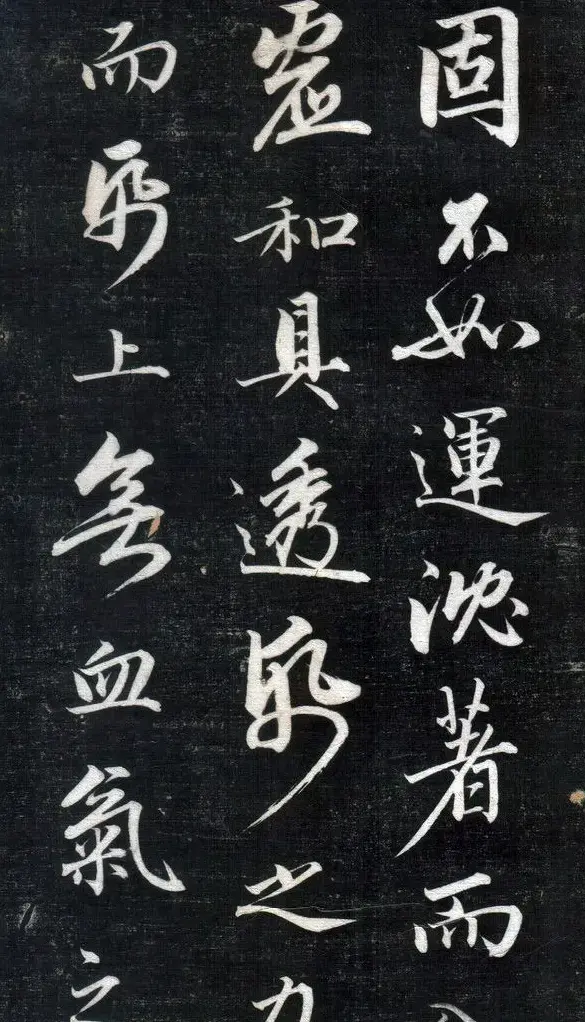 固不如運沈著而
虛和具透帋之力
而帋上無血氣之